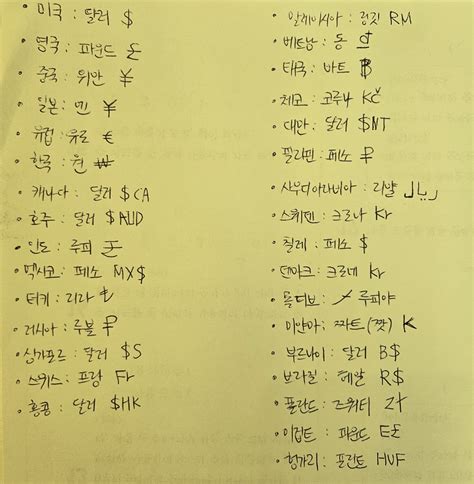 • 미국 : 달러 $
• 영국 : 파운드 £
• 중국 : 위안 ¥
• 일본 : 엔 ¥
• 유럽 : 유로 €
• 한국 : 원 ₩
• 캐나다 : 달러 $CA
• 호주 : 달러 $AUD
• 인도 : 루피
• 멕시코 : 페소 MX$
• 터키 : 리라 ₺
• 러시아 : 루블 ₽
• 싱가포르 : 달러 $S
• 스위스 : 프랑 Fr
• 홍콩 : 달러 $HK
• 말레이시아 : 링깃 RM
• 베트남 : 동 ₫
• 태국 : 바트 ฿
• 체코 : 코루나 Kč
• 대만 : 달러 $NT
• 필리핀 : 페소 ₽
• 사우디아라비아 : 리얄 ريال
• 스웨덴 : 크로나 Kr
• 칠레 : 페소 $
• 덴마크 : 크로네 Kr
• 몰디브 : 루피야
• 미얀마 : 짜트(짯) K
• 부르나이 : 달러 B$
• 브라질 : 헤알 R$
• 폴란드 : 즈워티 zł
• 이집트 : 파운드 E£
• 헝가리 : 포린트 HUF